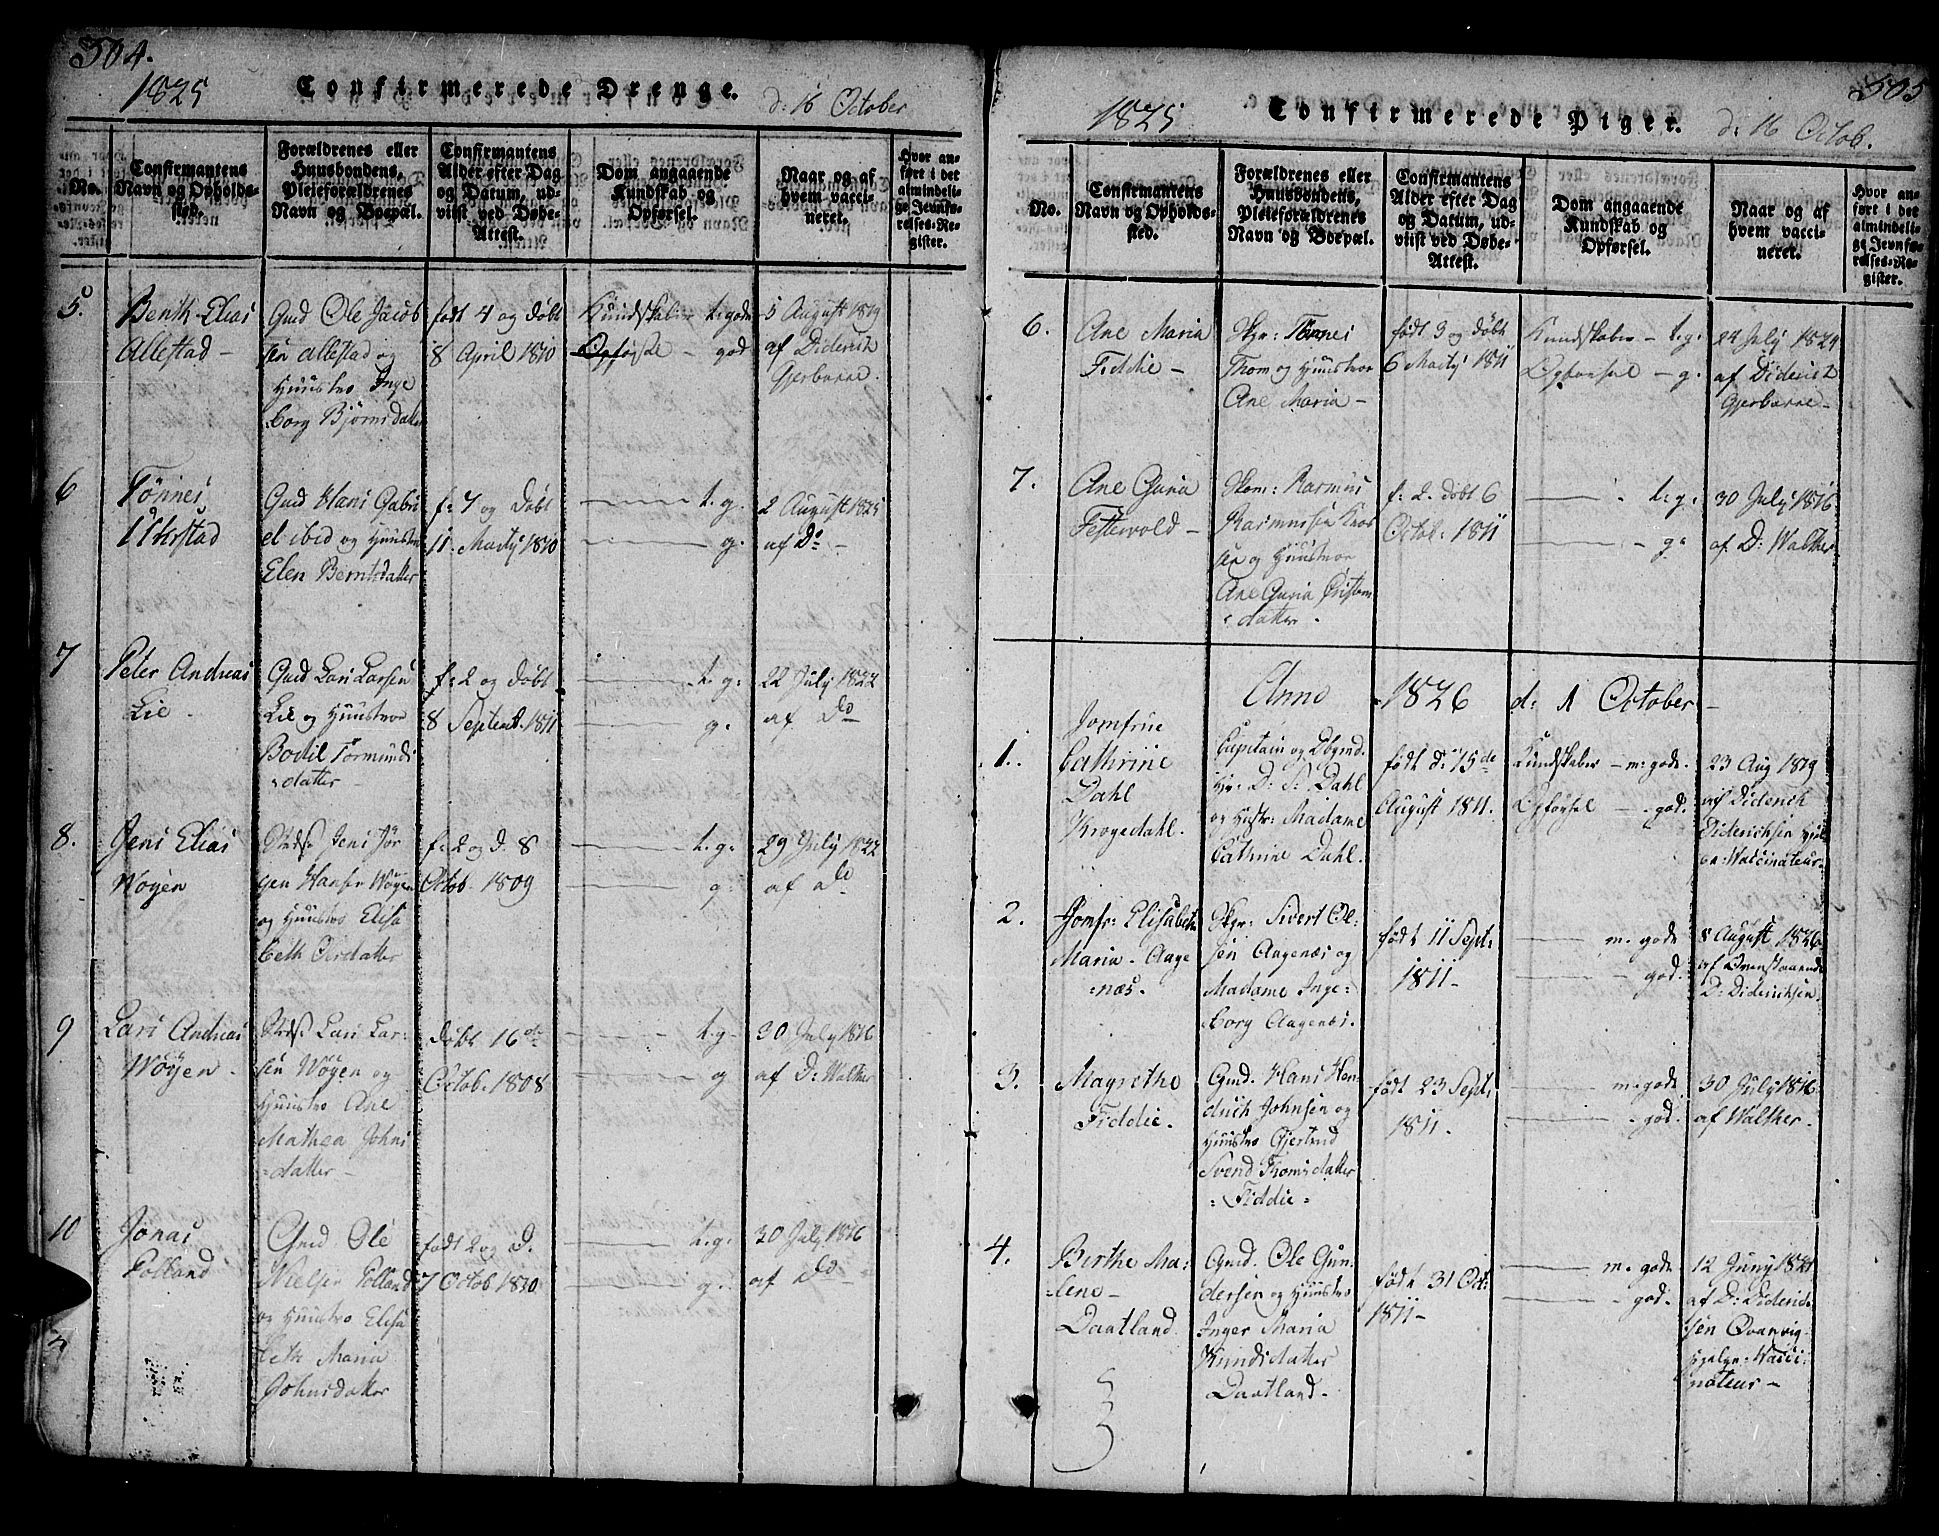 504.
1825
Confirmerede Drenge.
d: 16 October
No.
Confirmantens
Navn og Opholds-
sted.
Forældrenes eller
Huusbondens,
Pleieforældrenes
Navn og Boepæl.
Confirmantens
Alder efter Dag
og Datum, ud-
viist ved Døbe-
Attest.
Dom angaaende
Kundskab og
Opførsel.
Naar og af
hvem vacci-
neret.
Hvor an-
ført i det
almindeli-
ge Jevnfø-
relses-Re-
gister.
5.
Allestad -
Gmd Ole Jacob
sen Allestad og
Huustro Inge
borg Bjørnsdatter
født 4 og døbt
8 April 1810
Kundskaber t. gode
Opførsel - god
5 August 1819
af Diderich
Gjerbarne.
6
Tønnes
Gmd Hans Gabri
el ibid og Huustro
Elen Berntsdatter
f: 7 og døbt
11. Martij 1810
t. g.
g.
2 August 1825
af Do -
7
Peter Andreas
Lie.
Gmd Lars Larsen
Lie og Huustroe
Bodil Tormunds
datter -
f: 2 og døbt
8 Septemb. 1811
t. g:
g.
22 July 1822
af Do
8.
Jens Elias
Wøyen
Jens Jør
gen Hansen Wøyen
og Huustro Elisa
beth
f: 2 og d. 8
Octob. 1809
t. g.
g:
29 July 1822
af Do
9
Lars Andreas
Wøyen.
Lars Lar-
sen Wøyen og
Huustro Ane
Mathea Johns
datter -
døbt 16de
Octob. 1808
t. g.
g
30 July 1816
af D: Walther
10
Jonas
Folland
Gmd Ole
Nielsen Folland
og Huustro Elisa
beth Maria
Johnsdatter
født 2 og d.
7 Octob 1810.
t. g.
g.
30 July 1816
af Do
505
1825
Confirmerede Piger.
d: 16 Octob.
No.
Confirmantens
Navn og Opholds-
sted.
Forældrenes eller
Huusbondens,
Pleieforældrenes
Navn og Boepæl.
Confirmantens
Alder efter Dag
og Datum, ud-
viist ved Døbe-
Attest.
Dom angaaende
Kundskab og
Opførsel.
Naar og af
hvem vacci-
neret.
Hvor an-
ført i det
almindeli-
ge Jevnfø-
relses-Re-
gister.
6.
Ane Maria
Fiddie -
Tønnes
Thom og Huustroe
Ane Maria -
født 3 og døbt
6 Martij 1811
Kundskaber - t. g.
Opførsel - g.
24 July 1824
af Diderich
Gjerbarne -
7.
Ane Guria
Fettervold -
Rasmus
Rasmussen
sen og Huustroe
Ane Guria
datter.
f: 2. døbt 6
Octob. 1811
t. g.
g.
30 July 1816
af D: Walther
Anno 1826 d: 1 October
1.
Jomfrue
Cathrine
Dahl
Krogedahl.
Capitain og
Hr: D. S: Dahl
og Hustr: Madame
Cathrine Dahl.
født d: 15de
August 1811.
Kundskaber - m: gode.
Opførsel - god.
23 Aug 1819
af Diderich
Diderichsen
Vaccinateur
2.
Jomfr: Elisabeth
Maria Aage
næs.
Sivert Ol-
sen Aagenæs og
Madame Inge-
borg Aagenes.
født 11 Sept:
1811 -
m. gode
god.
8 August 1826
af
D: Diderichsen
3.
Magrethe
Fiddie.
Gmd. Hans Hen-
drich Johnsen og
Huustro Gjertrud
Svend Thomsdatter
Fiddie
født 23 Sept:
1811.
m: gode
god.
30 July 1816
af Walther.
4.
Birthe Ma-
lene -
Daatland
Gmd. Ole Gun-
dersen og Huustro
Inger Maria
Knudsdatter
Daatland -
født 31 Oct:
1811 -
m. gode
god.
12 Juny 1821
af D: Diderich
sen Qvanvig
Vacci-
nateur -